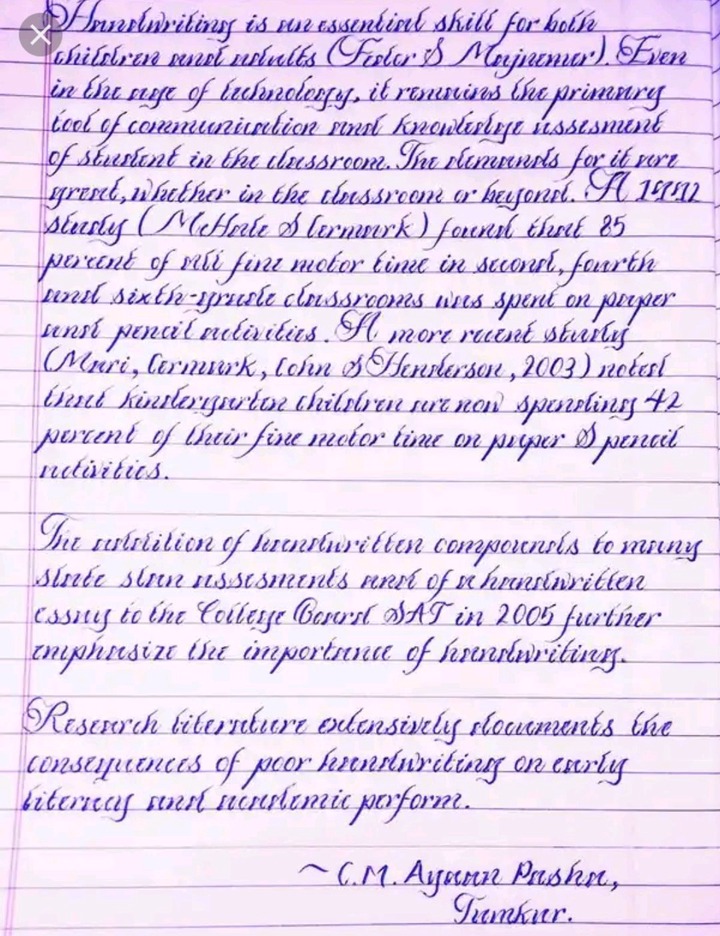 Handwriting is an essential skill for both
children and adults (Feder & Majnemur). Even
in the age of technology, it remains the primary
tool of communication and knowledge assesment
of student in the classroom. The demands for it are
great, whether in the classroom or beyond. A 1992
study (McHale & Cermark) found that 85
percent of all fine motor time in second, fourth
and sixth-grade classrooms was spent on paper
and pencil activities. A more recent study
(Marr, Cermark, Cohn & Henderson, 2003) noted
that kindergarten children are now spending 42
percent of their fine motor time on paper & pencil
activities.
The addition of handwritten compounds to many
state stan assesments and of a handwritten
essay to the College Board SAT in 2005 further
emphasize the importance of handwriting.
Research literature extensively documents the
consequences of poor handwriting on early
literacy and academic perform.
~ C.M. Ayaan Pasha,
Tumkur.